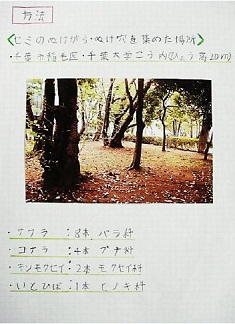 方法
<セミのぬけがら・ぬけ穴を集めた場所>
・千葉市稲毛区・千葉大学こう内(ひょう高20m)
・サクラ:8本 バラ科
・コナラ:4本 ブナ科
・キンモクセイ:2本 モクセイ科
・いとひば:1本 ヒノキ科